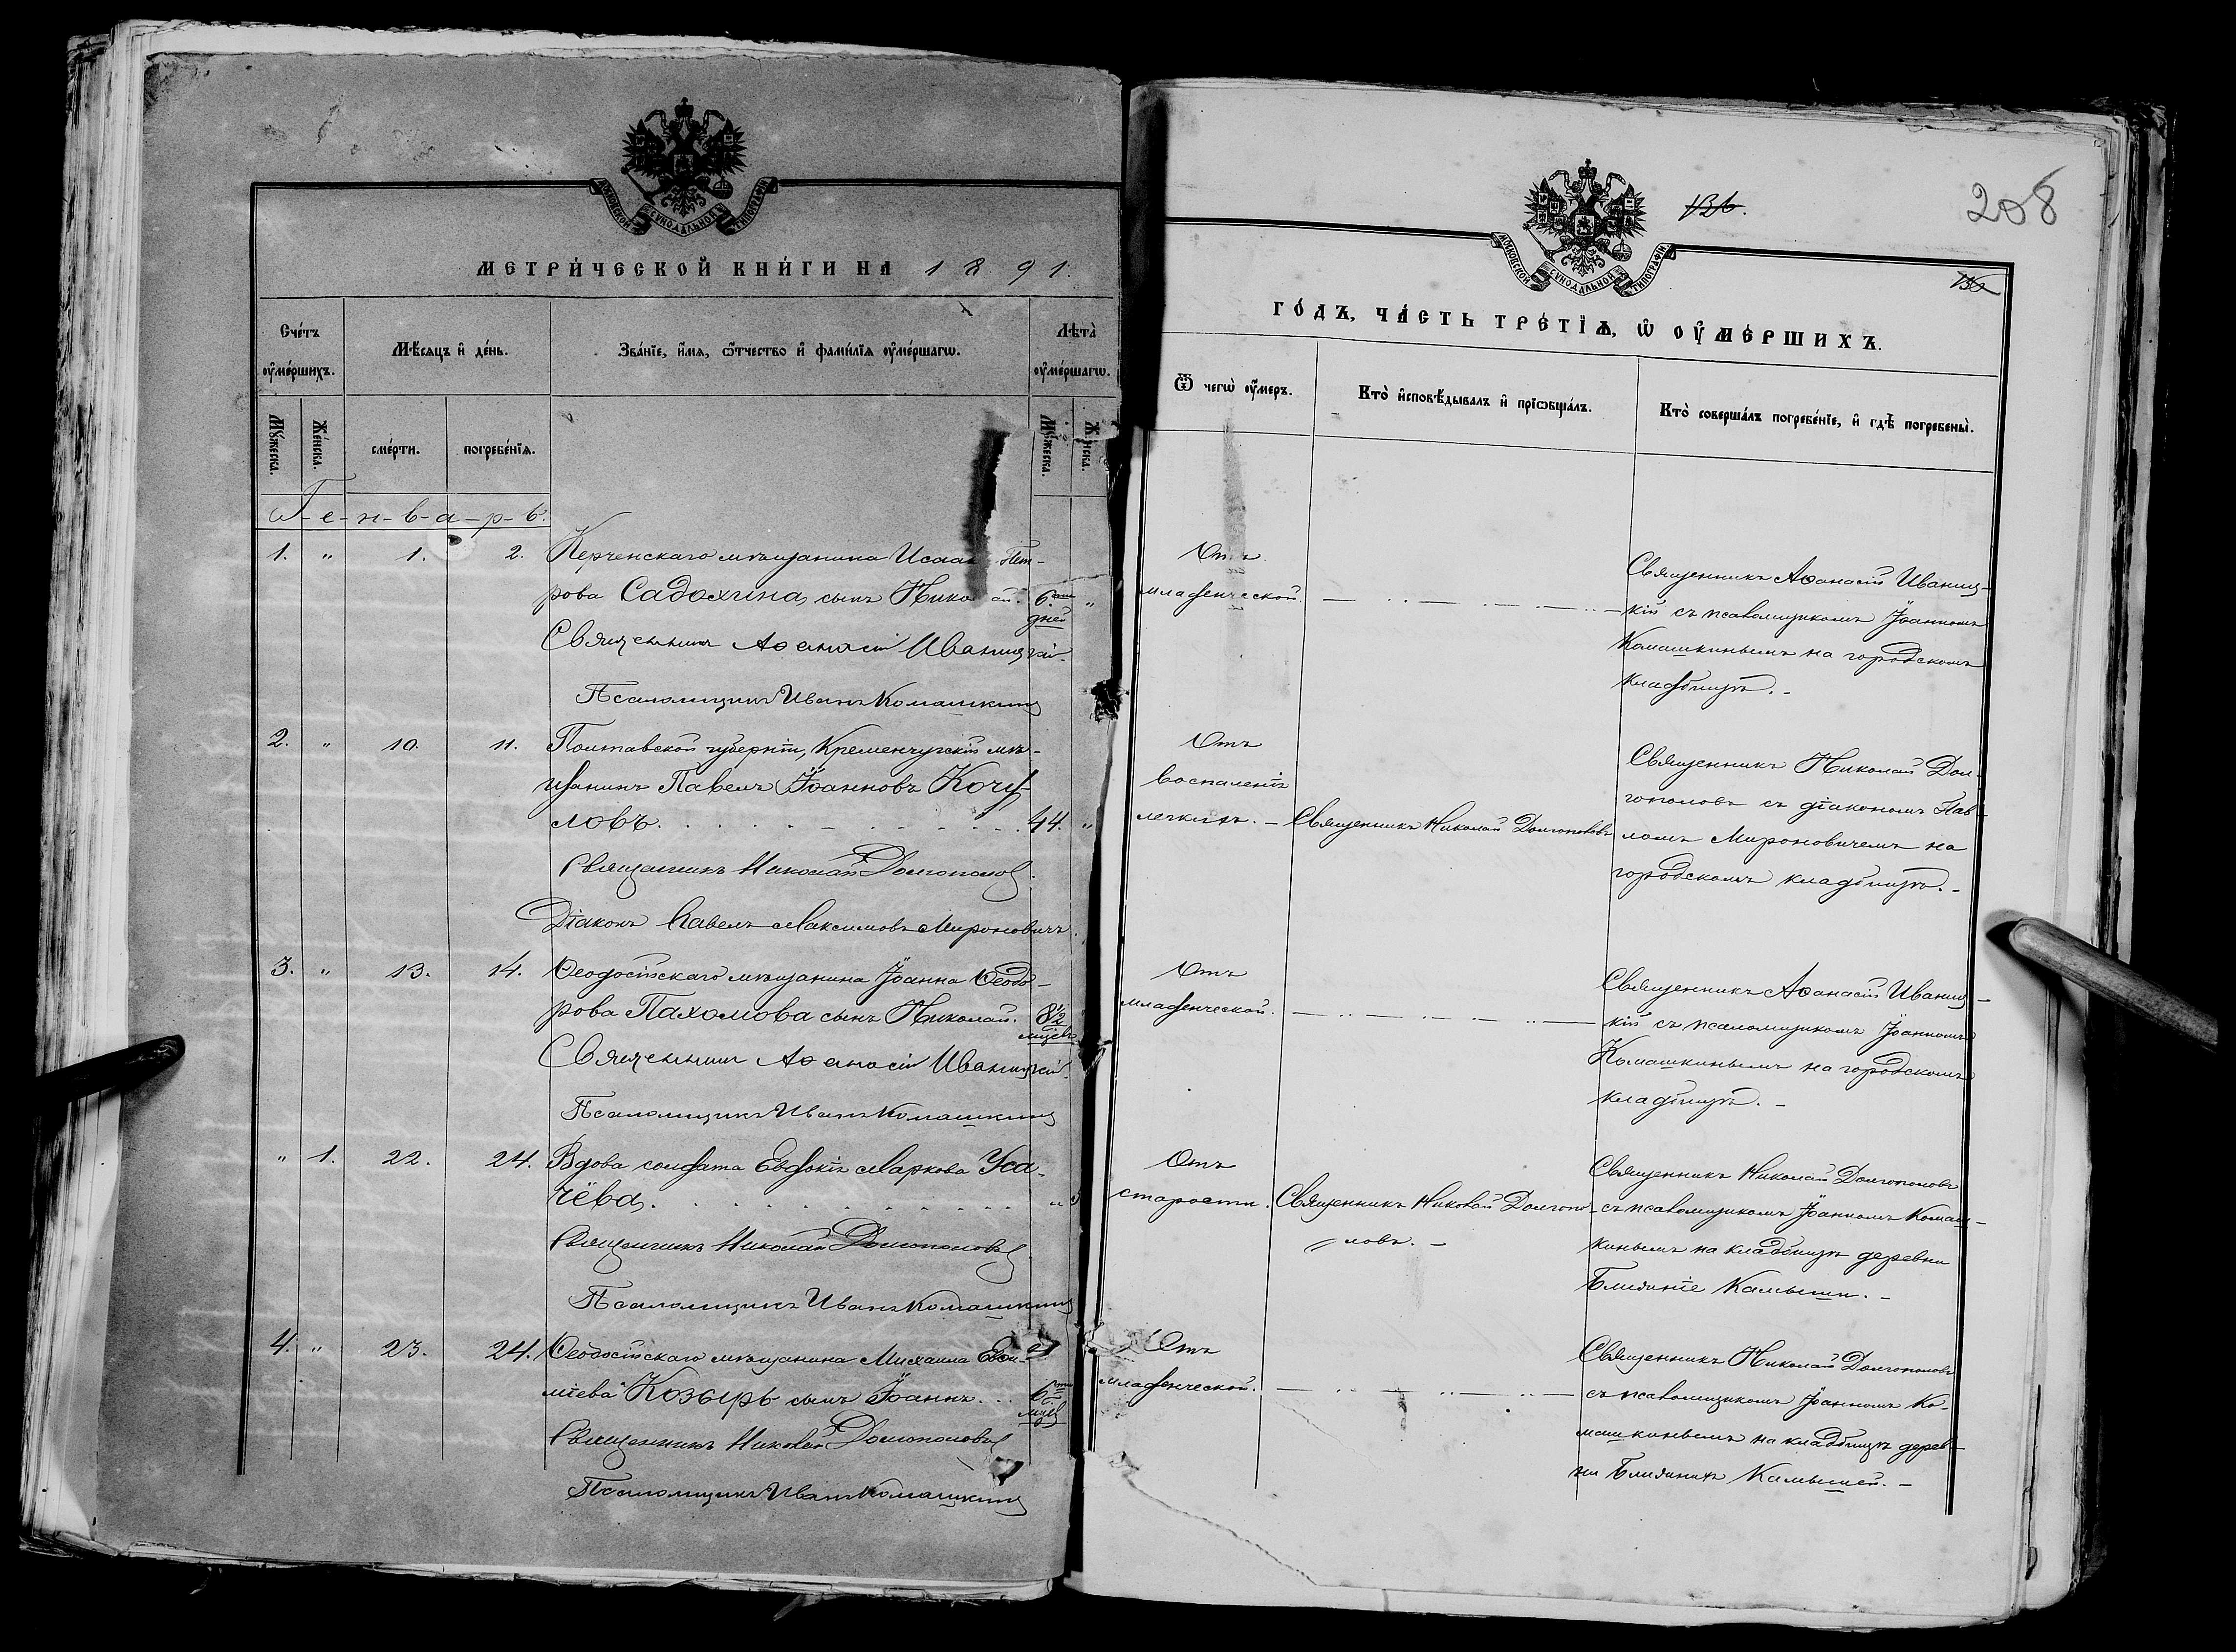 МОСКОВСКОЙ СУНОДАЛЬНОЙ ТИПОГРАФІИ
МЕТРИ́ЧЕСКОЙ КНИ́ГИ НА 1891.
Сче́тъ оу҆ме́ршихъ.
Мѣ́сяцъ и҆ де́нь.
Зва́нїе, и҆́мя, ѻ҆́тчество и҆ фами́лїя оу҆ме́ршагѡ.
Лѣта̀ оу҆ме́ршагѡ.
Мꙋ́жеска.
Же́нска.
сме́рти.
погребе́нїя.
Мꙋ́жеска.
Же́нска.
Г-е-н-в-а-р-ь.
1. " 1. 2. Керченскаго мѣщанина Исаак Пет-
рова Садохина, сынъ Никол ай. 6. "
дней
Священникъ Аѳанасій Иваницкій.
Псаломщикъ Иванъ Комашкинъ
2. " 10. 11. Полтавской губерніи, Кременчугскій мѣ-
щанинъ Павелъ Іоанновъ Кочу-
ловъ. 44. "
Священникъ Николай Долгополов.
Діаконъ Павелъ Максимовъ Мироновичъ.
3. " 13. 14. Ѳеодосійскаго мѣщанина Іоанна Ѳеодо-
рова Пахомова сынъ Николай. 8½
мѣсев
Священникъ Аѳанасій Иваницкій.
Псаломщикъ Иванъ Комашкинъ
" 1. 22. 24. Вдова солдата Евдокія Маркова Уса-
чёва. "
Священникъ Николай Долгополовъ
Псаломщикъ Иванъ Комашкинъ
4. " 23. 24. Ѳеодосійскаго мѣщанина Михаила Евѳи-
міева Козырь сынъ Іоаннъ. 6
мцев
Священникъ Николай Долгополовъ
Псаломщикъ Иванъ Комашкинъ
136.
208
МОСКОВСКОЙ СУНОДАЛЬНОЙ ТИПОГРАФІИ
136
ГО́ДЪ, ЧА́СТЬ ТРЕ́ТЇѦ, Ѡ҆ ОУ҆МЕ́РШИХЪ.
Ѿ чегѡ̀ оу҆́меръ.
Кто̀ и҆сповѣ́дывалъ и҆ прїѡбща́лъ.
Кто̀ соверша́лъ погребе́нїе, и҆ гдѣ̀ погребены̀.
Отъ
младенческой.
Священникъ Аѳанасій Иваниц-
кій съ псаломщикомъ Іоанномъ
Комашкинымъ на городскомъ
кладбищѣ.
Отъ
воспаленія
легкихъ. - Священникъ Николай Долгополовъ
Священникъ Николай Дол-
гополовъ съ діакономъ Пав-
ломъ Мироновичемъ на
городскомъ кладбищѣ. -
Отъ
младенческой.
Священникъ Аѳанасій Иваниц-
кій съ псаломщикомъ Іоанномъ
Комашкинымъ на городскомъ
кладбищѣ. -
Отъ
старости. Священникъ Николай Долгопо-
ловъ. -
Священникъ Николай Долгополовъ
съ псаломщикомъ Іоанномъ Комаш-
кинымъ на кладбищѣ деревни
Ближніе Камыши. -
Отъ
младенческой.
Священникъ Николай Долгополовъ
съ псаломщикомъ Іоанномъ Ко-
машкинымъ на кладбищѣ дерев-
ни Ближнихъ Камышей. -